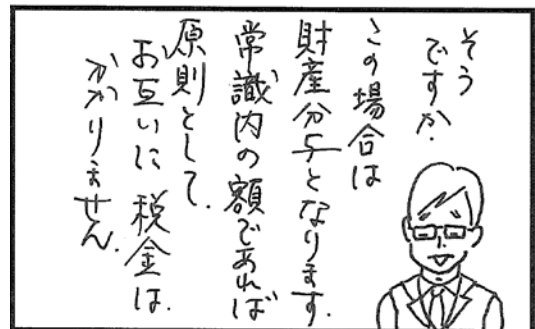 そう
ですか.
この場合は
財産分与となります.
常識内の額であれば
原則として.
お互いに税金は.
かかりません.